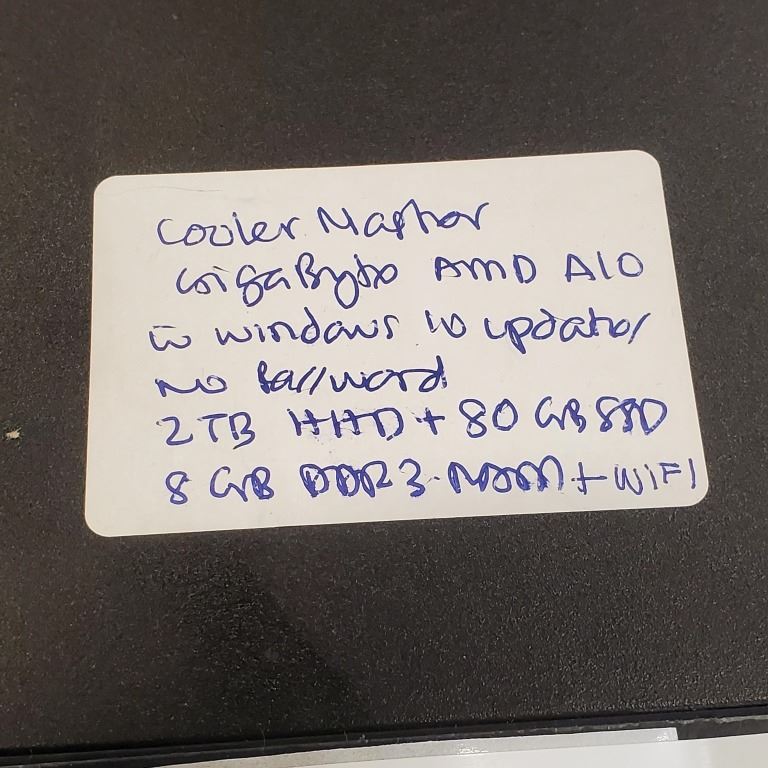 Cooler Master
GigaByte AMD A10
W windows 10 updates/
No Password
2TB HHD + 80 GB SSD
8 GB DDR3 RAM + WiFi